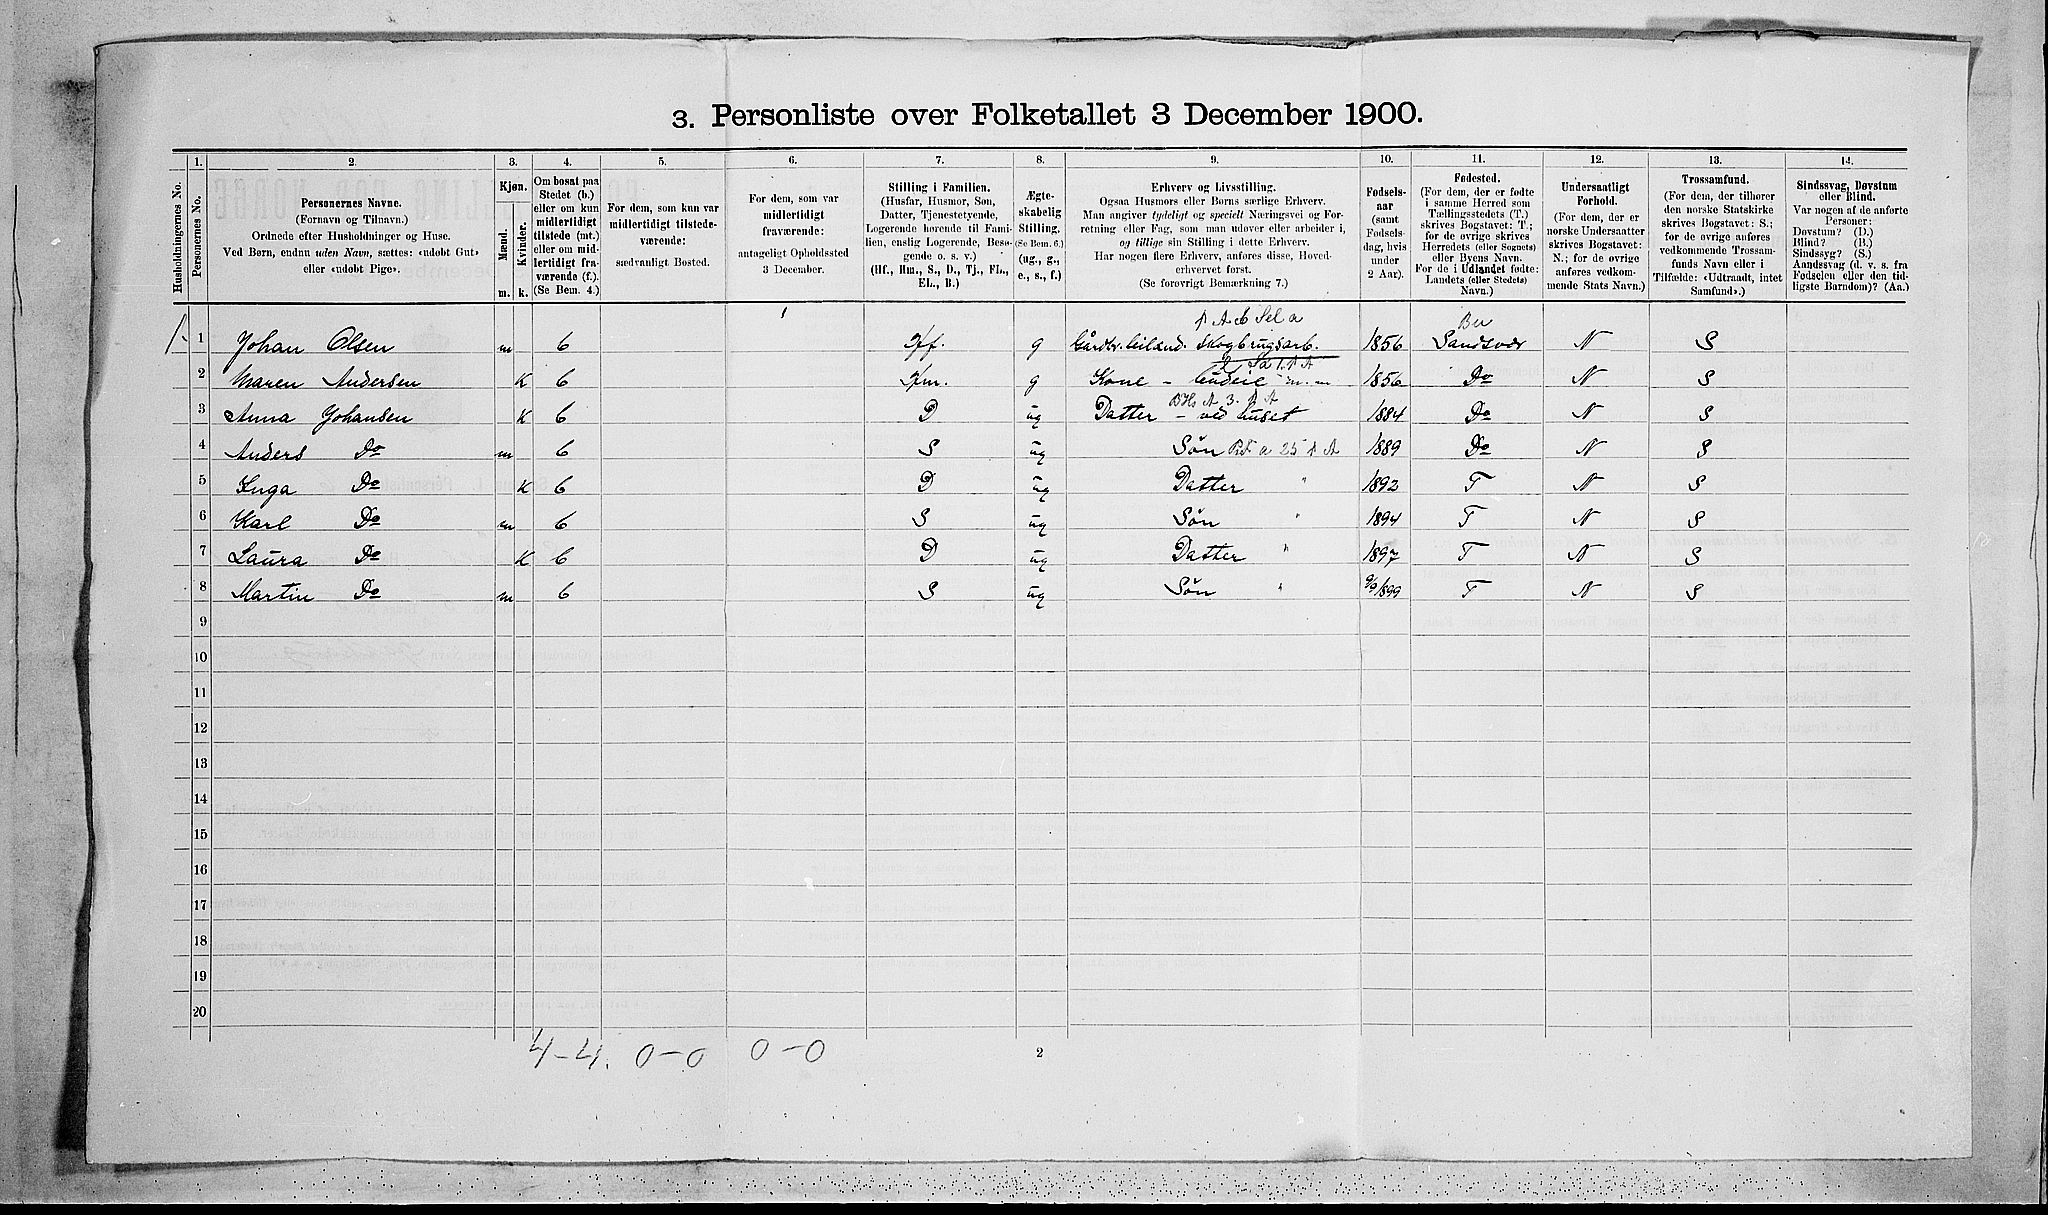 3. Personliste over Folketallet 3 December 1900.
1. 2. 3. 4. 5. 6. 7. 8. 9. 10. 11. 12. 13. 14.
Husholdningernes No.
Personernes No.
Personernes Navne.
(Fornavn og Tilnavn.)
Ordnede efter Husholdninger og Huse.
Ved Børn, endnu uden Navn, sættes: «udøbt Gut»
eller «udøbt Pige».
Kjøn.
Mænd.
Kvinder.
m. k.
Om bosat paa
Stedet (b.)
eller om kun
midlertidigt
tilstede (mt.)
eller om mid-
lertidigt fra-
værende (f.).
(Se Bem. 4.)
For dem, som kun var
midlertidigt tilstede-
værende:
sædvanligt Bosted.
For dem, som var
midlertidigt
fraværende:
antageligt Opholdssted
3 December.
Stilling i Familien.
(Husfar, Husmor, Søn,
Datter, Tjenestetyende,
Logerende hørende til Fami-
lien, enslig Logerende, Besø-
gende o. s. v.)
(Hf., Hm., S., D., Tj., FL.,
EL., B.)
Ægte-
skabelig
Stilling.
(Se Bem. 6.)
(ug., g.,
e., s., f.)
Erhverv og Livsstilling.
Ogsaa Husmors eller Børns særlige Erhverv.
Man angiver tydeligt og specielt Næringsvei og For-
retning eller Fag, som man udøver eller arbeider i,
og tillige sin Stilling i dette Erhverv.
Har nogen flere Erhverv, anføres disse, Hoved-
erhvervet først.
(Se forøvrigt Bemærkning 7.)
Fødsels-
aar
(samt
Fødsels-
dag, hvis
under
2 Aar).
Fødested.
(For dem, der er fødte
i samme Herred som
Tællingsstedets (T.)
skrives Bogstavet: T.;
for de øvrige skrives
Herredets (eller Sognets)
eller Byens Navn.
For de i Udlandet fødte:
Landets (eller Stedets)
Navn.)
Undersaatligt
Forhold.
(For dem, der er
norske Undersaatter
skrives Bogstavet:
N.; for de øvrige
anføres vedkom-
mende Stats Navn.)
Trossamfund.
(For dem, der tilhører
den norske Statskirke
skrives Bogstavet: S.;
for de øvrige anføres
vedkommende Trossam-
funds Navn eller i
Tilfælde: «Udtraadt, intet
Samfund».)
Sindssvag, Døvstum
eller Blind.
Var nogen af de anførte
Personer:
Døvstum? (D.)
Blind? (B.)
Sindssyg? (S.)
Aandssvag (d. v. s. fra
Fødselen eller den tid-
ligste Barndom)? (Aa.)
1 Johan Olsen m b Hf. g Gårdbr. leilænd. Skogbrugsarb. 1856 Sandsvær N S
2 Maren Andersen K b Hm. g Kone 1856 Do N S
3 Anna Johansen K b D ug Datter – ved huset 1884 Do N S
4 Anders Do m b S ug Søn 1889 Do N S
5 Inga Do K b D ug Datter " 1892 T N S
6 Karl Do m b S ug Søn " 1894 T N S
7 Laura Do K b D ug Datter " 1897 T N S
8 Martin Do m b S ug Søn " 9/9 1899 T N S
9
10
11
12
13
14
15
16
17
18
19
20
4–4. 0–0 0–0
2